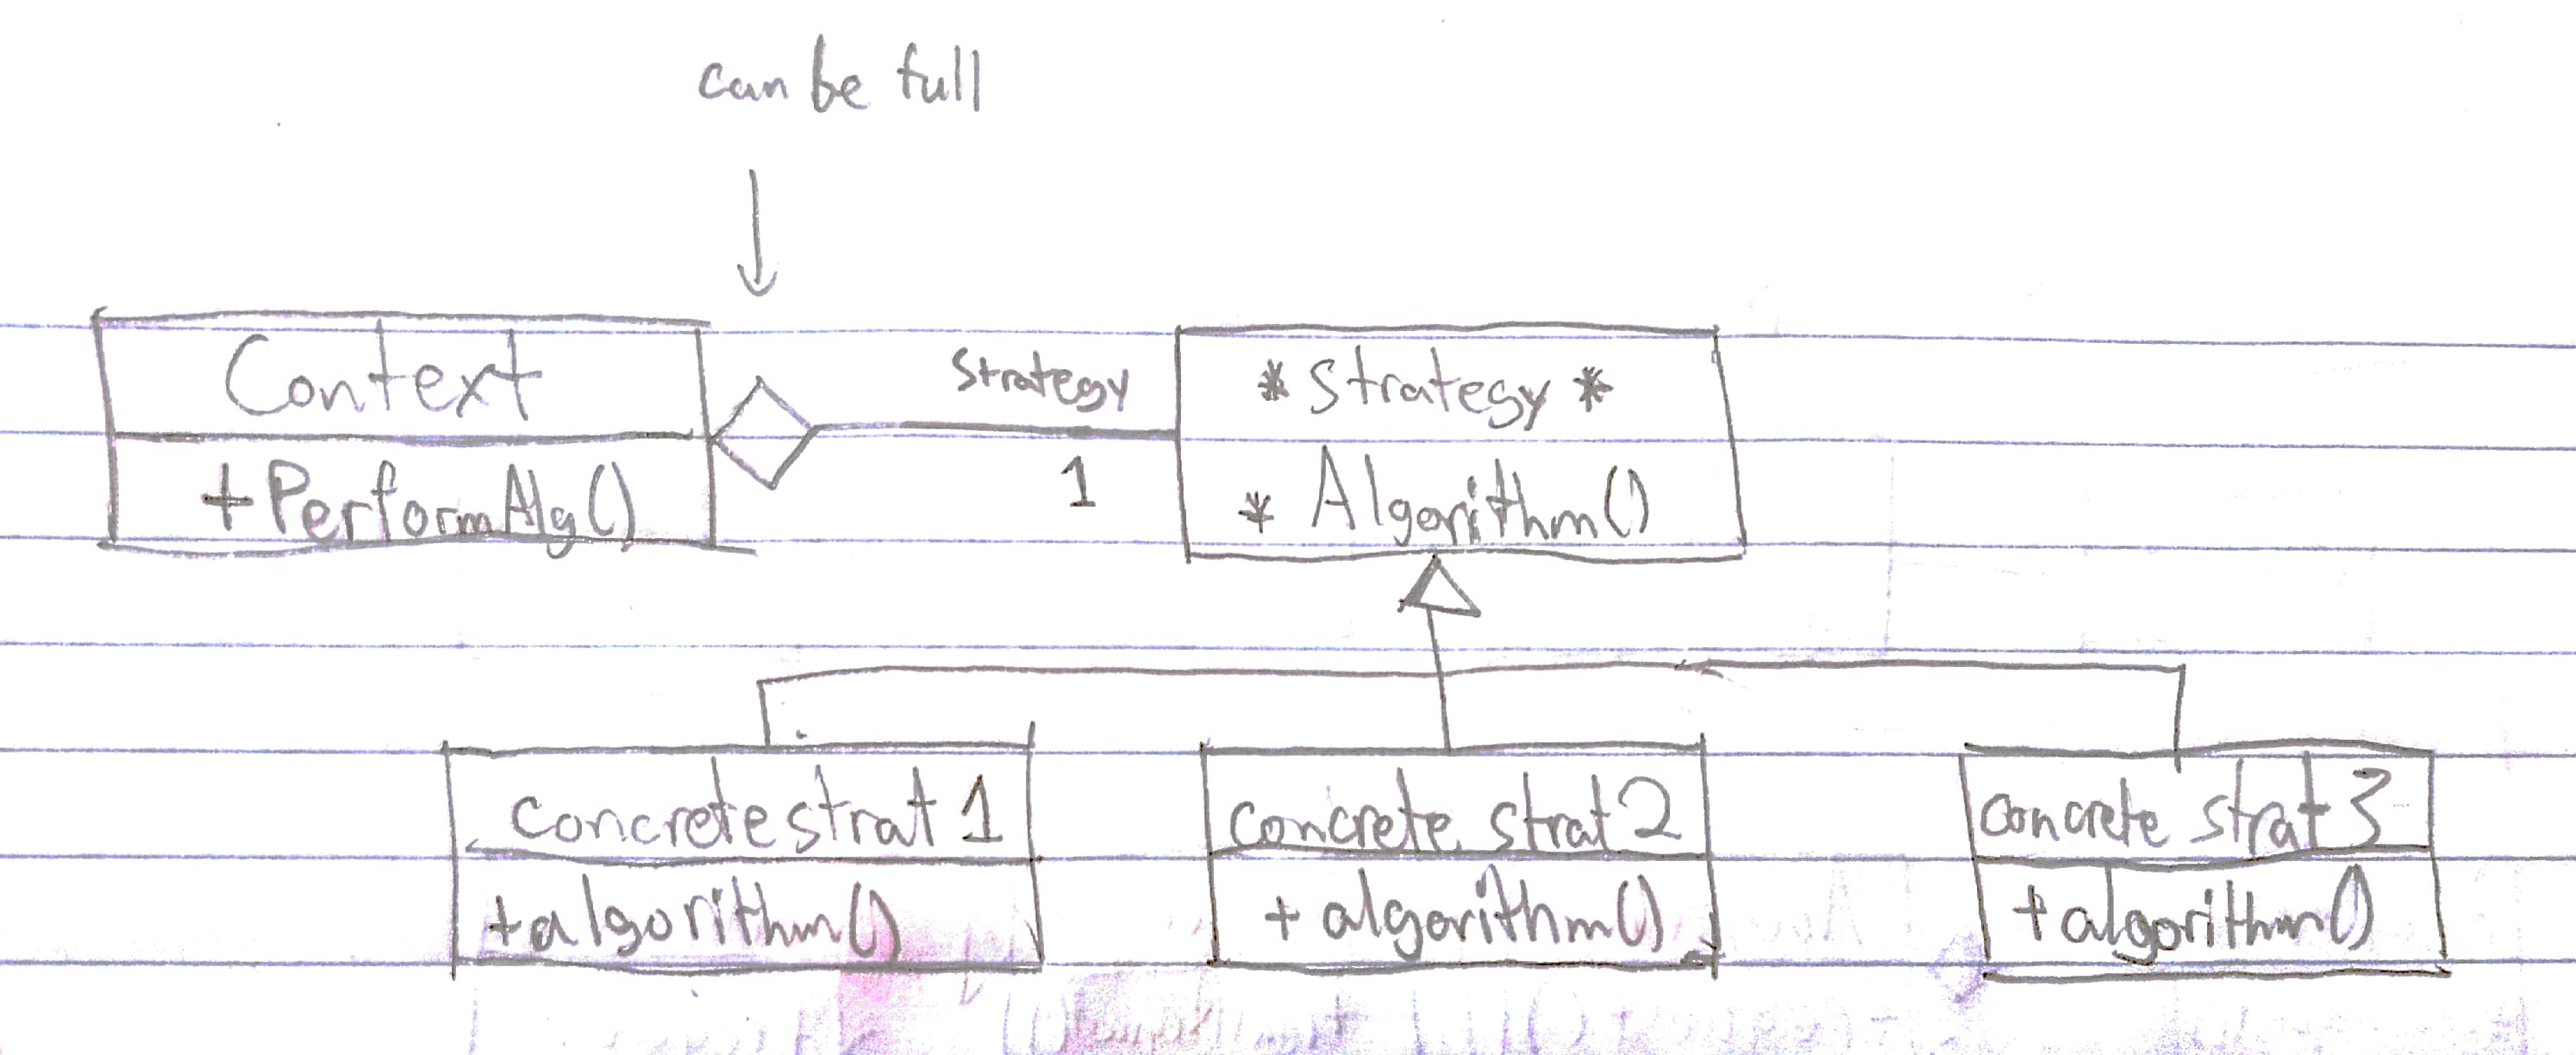 can be full
Context
+PerformAlg()
Strategy
1
* Strategy *
* Algorithm()
concrete strat 1
+algorithm()
concrete strat 2
+ algorithm()
concrete strat 3
+algorithm()